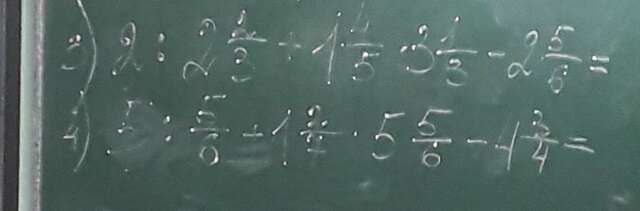 3) 2 : 2 2/3 + 1 4/5 · 3 1/3 - 2 5/6 =
4) 5 : 5/6 + 1 2/7 · 5 5/6 - 1 3/4 =